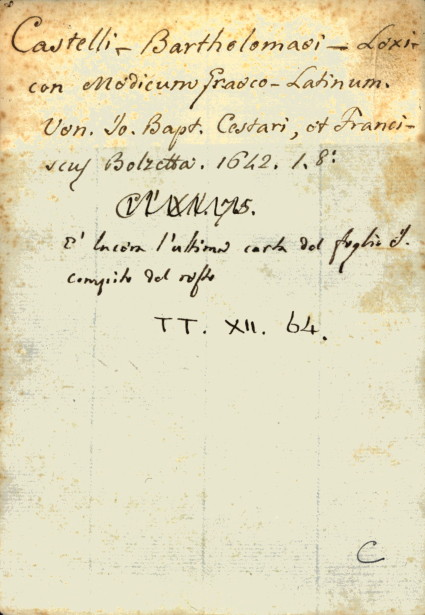 Castelli - Bartholomaei - Lexi-
con Medicum Graeco-Latinum.
Ven. Io. Bapt. Cestari, et Franci-
scus Bolzetta. 1642. 1. 8:
E' lacera l'ultima carta del foglio I.
compito del resto
TT. XII. 64.
C